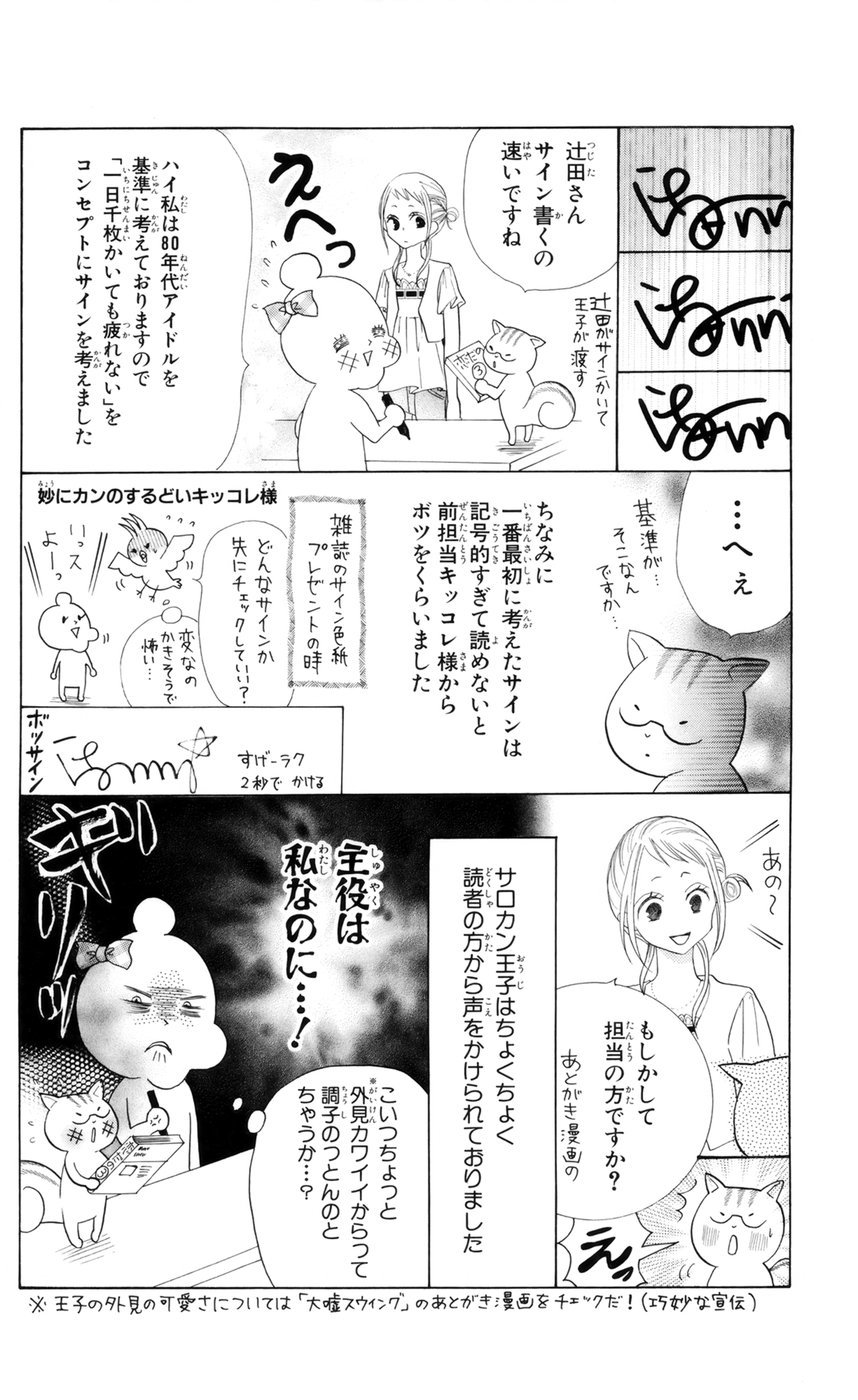 辻田さん
サイン書くの
速いですね
辻田がサインかいて
王子が渡す
恋だの
③
えへっ
ハイ私は80年代アイドルを
基準に考えておりますので
「一日千枚かいても疲れない」を
コンセプトにサインを考えました
…へぇ
基準が…
そこなん
ですか…
ちなみに
一番最初に考えたサインは
記号的すぎて読めないと
前担当キッコレ様から
ボツをくらいました
妙にカンのするどいキッコレ様
雑誌のサイン色紙
プレゼントの時
どんなサインか
先にチェックしていい?
変なの
かきそうで
怖い…
いっス
よーっ
ボツサイン
すげーラク
2秒でかける
あの~
もしかして
担当の方ですか?
あとがき漫画の
えっ
サロカン王子はちょくちょく
読者の方から声をかけられておりました
主役は
私なのに…!
ギリッ
こいつちょっと
※外見カワイイからって
調子のっとんのと
ちゃうか…?
※王子の外見の可愛さについては「大嘘スウイング」のあとがき漫画をチェックだ!(巧妙な宣伝)